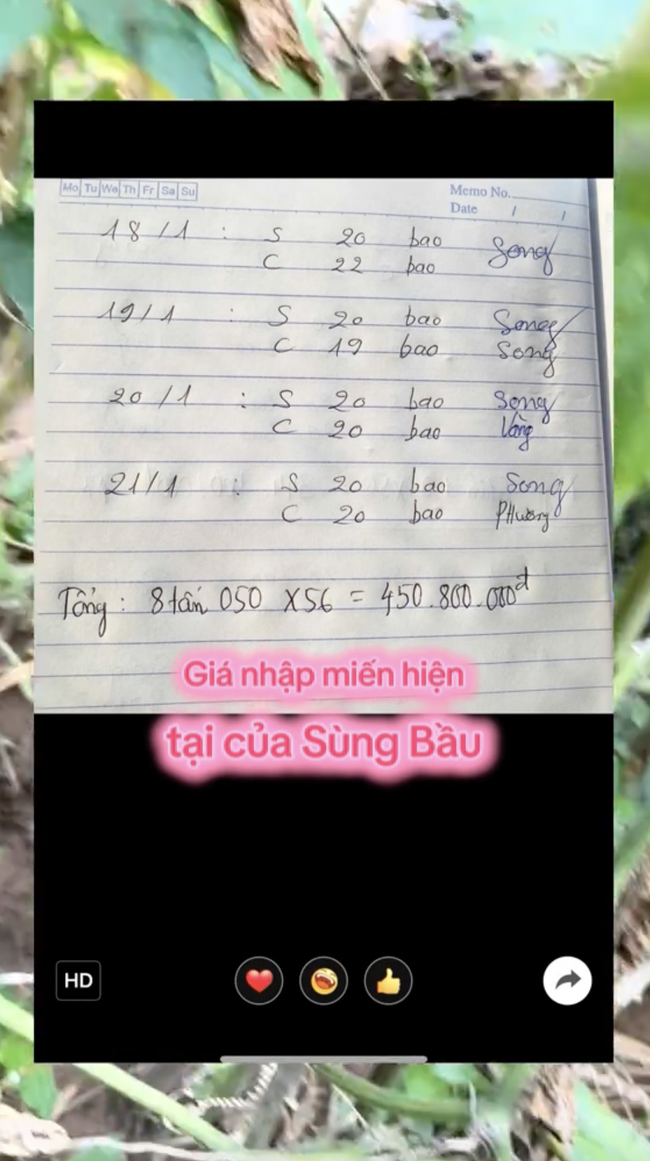 Mo Tu We Th Fr Sa Su
Memo No.
Date / /
18/1 : S 20 bao Song
C 22 bao
19/1 : S 20 bao Song
C 19 bao Song
20/1 : S 20 bao Song
C 20 bao Vàng
21/1 : S 20 bao Song
C 20 bao Phương
Tổng : 8 tấn 050 x 56 = 450.800.000đ
Giá nhập miến hiện
tại của Sùng Bầu
HD